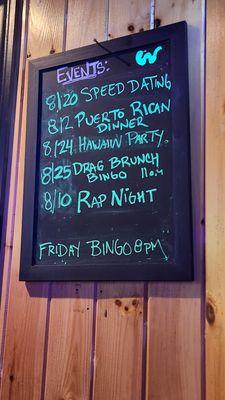 EVENTS:
8/20 SPEED DATING
8/2 PUERTO RICAN
DINNER
8/24 HAWAIIN PARTY
8/25 DRAG BRUNCH
BINGO 11am
8/10 RAP NIGHT
FRIDAY BINGO 8PM